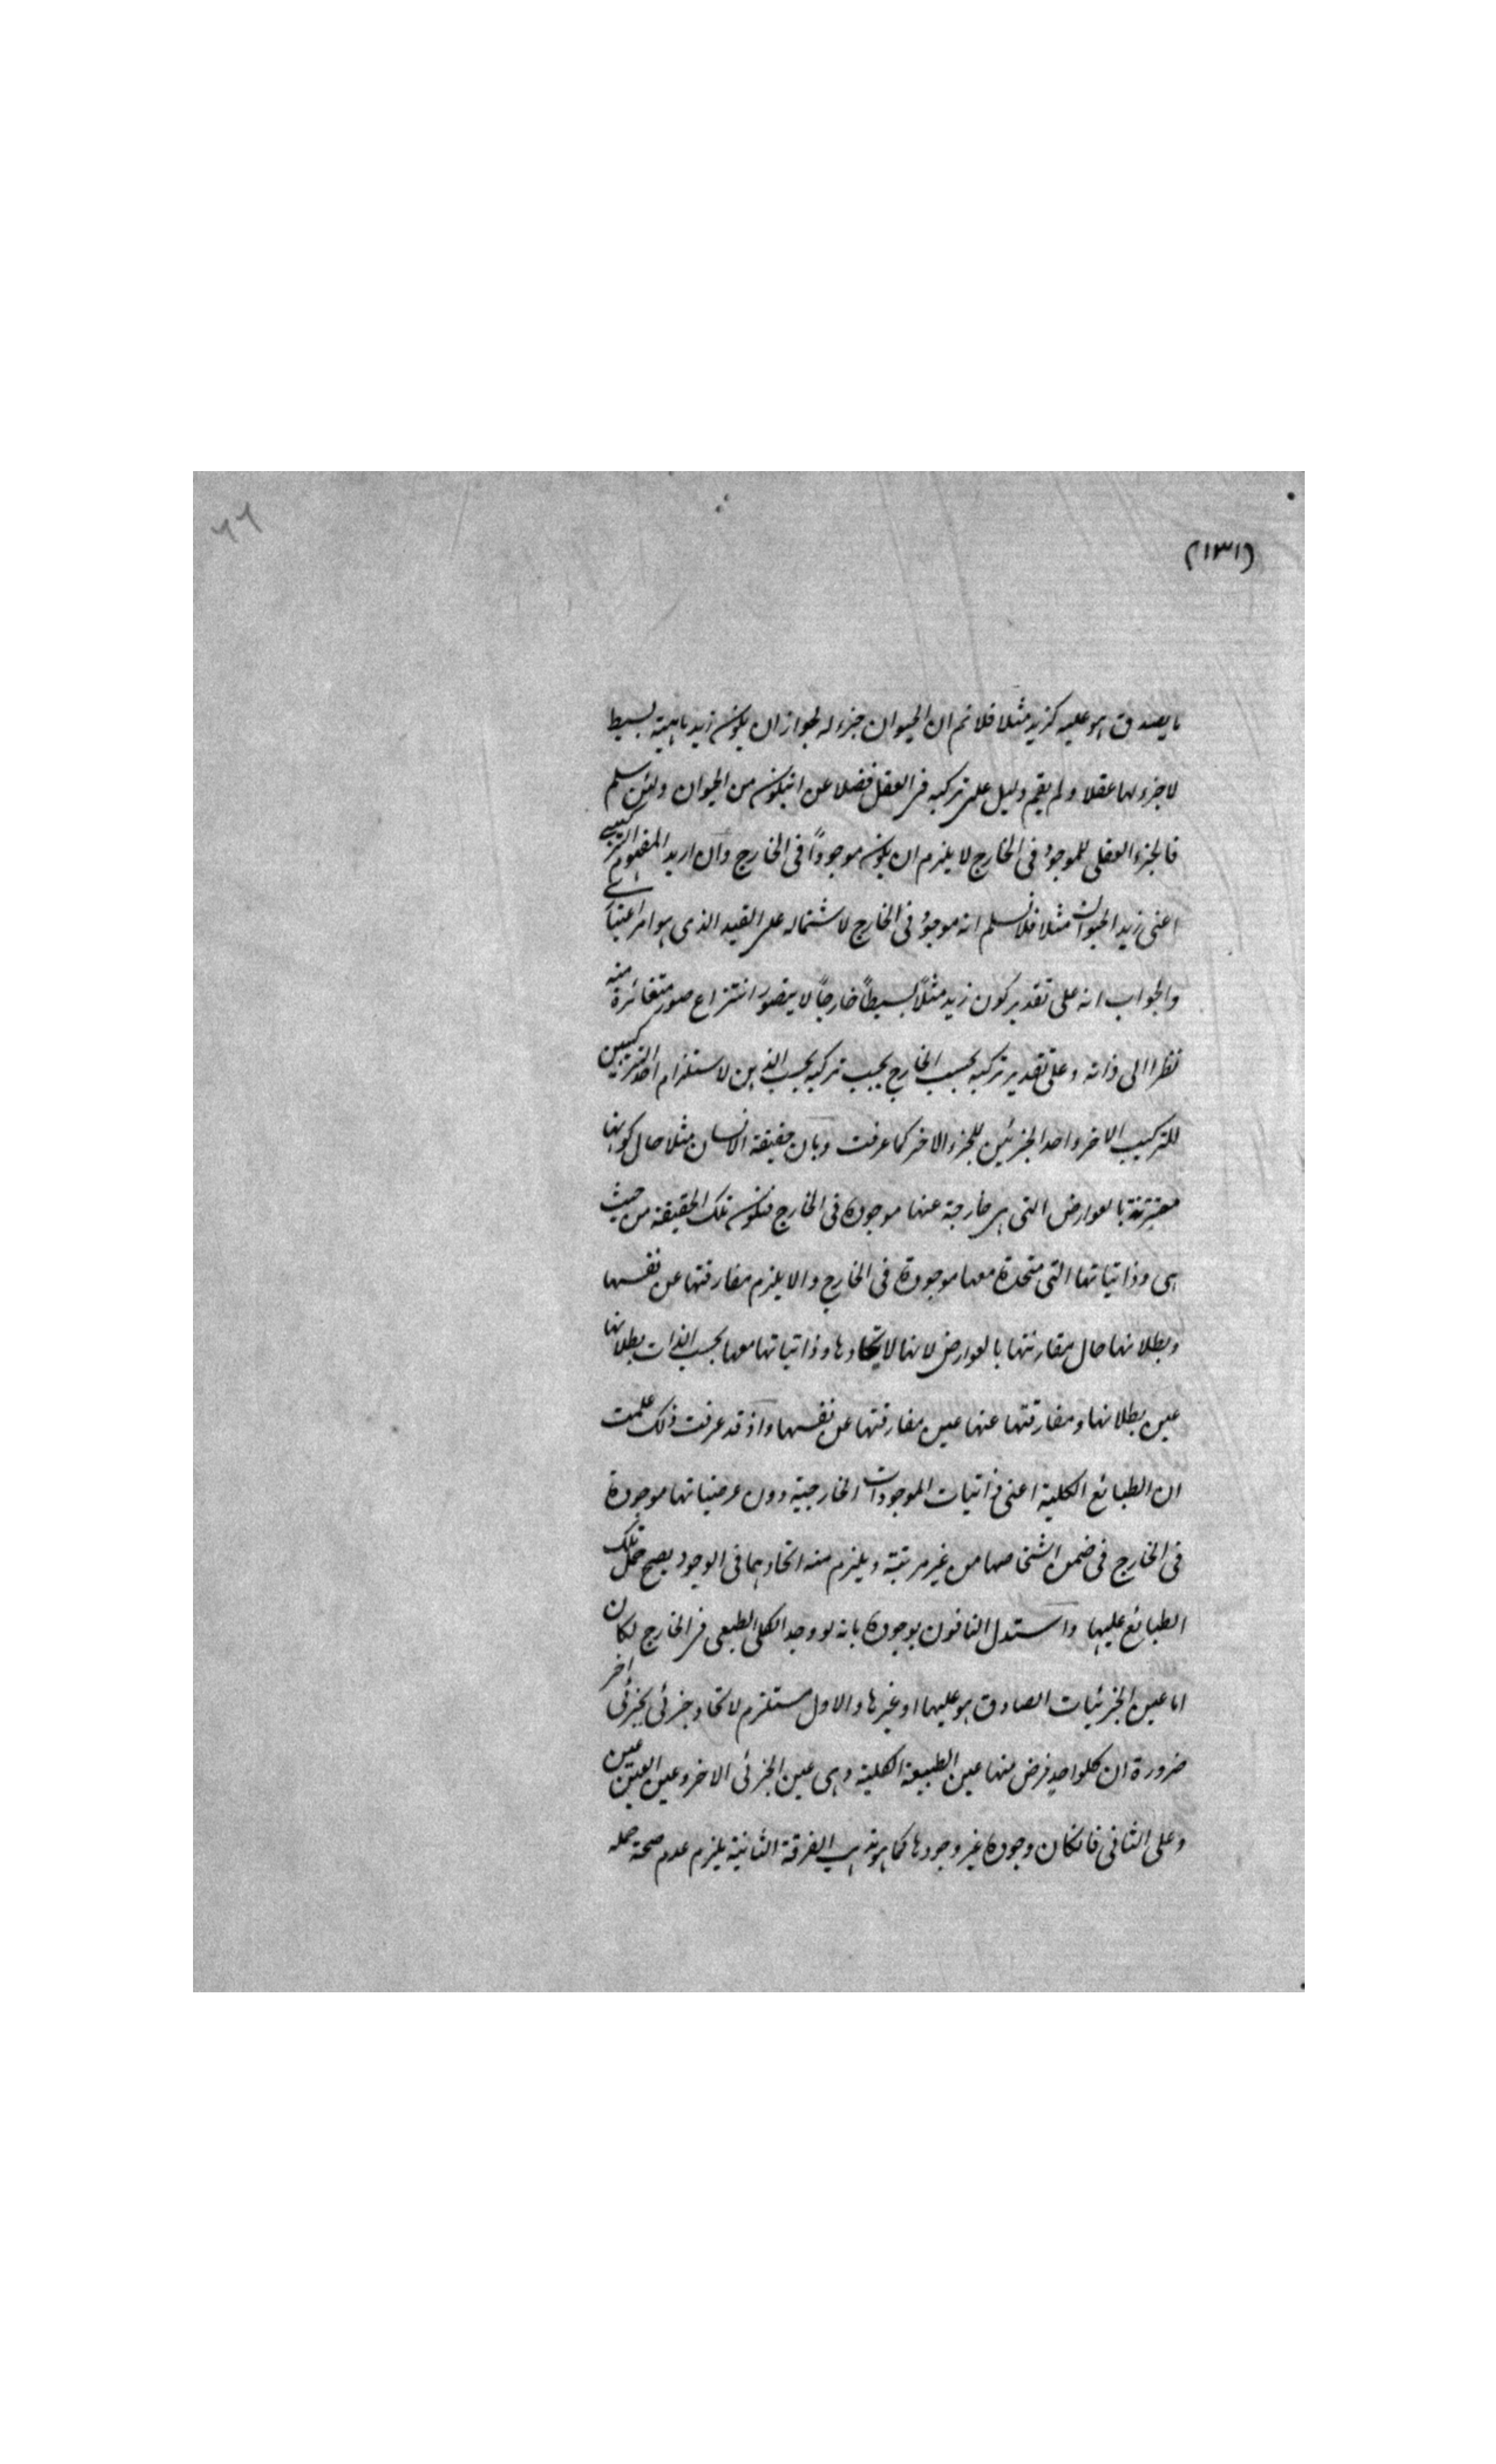 ٦٦
(١٣١)
ما يصدق هو عليه كزيد مثلا فلا نم ان الحيوان جزء له لجواز ان يكون زيد ماهية بسيط
لا جزء لها عقلا ولم يقم دليل على تركبه في العقل فضلا عن انيكون من الحيوان ولئن سلم
فالجزء العقلي للموجود في الخارج لا يلزم ان يكون موجوداً في الخارج وان اريد المفهوم التركيبي
اعني زيد الحيوان مثلا فلا نسلم انه موجود في الخارج لاشتماله على القيد الذي هو امر اعتباري
والجواب انه على تقدير كون زيد مثلاً بسيطاً خارجاً لا يتصور انتزاع صور متغائرة منه
نظرا الى ذاته وعلى تقدير تركبه بحسب الخارج يجب تركبه بحسب الذهن لاستلزام احد التركيبين
للتركيب الاخر واحد الجزئين للجزء الاخر كما عرفت وبان حقيقة الانسان مثلا حال كونها
مقترنة بالعوارض التي هي خارجة عنها موجودة في الخارج فتكون تلك الحقيقة من حيث
هي وذاتياتها التي متحدة معها موجودة في الخارج والا يلزم مفارقتها عن نفسها
وبطلانها حال مقارنتها بالعوارض لانها لاتحادها وذاتياتها معها بحسب الذات بطلانها
عين بطلانها ومفارقتها عنها عين مفارقتها عن نفسها واذ قد عرفت ذلك علمت
ان الطبائع الكلية اعني ذاتيات الموجودات الخارجية دون عرضياتها موجودة
في الخارج في ضمن اشخاصها من غير مرتبة ويلزم منه اتحادهما في الوجود يصح حمل تلك
الطبائع عليها واستدل النافون بوجوده بانه لو وجد الكلي الطبعي في الخارج لكان
اما عين الجزئيات الصادق هو عليها او غيرها والاول مستلزم لاتحاد جزئي بجزئي اخر
ضرورة ان كلواحد فرض منها عين الطبيعة الكلية وهي عين الجزئي الاخر وعين العين عين
وعلى الثاني فانكان وجوده غير وجودها كما هو مذهب الفرقة الثانية يلزم عدم صحة حمله